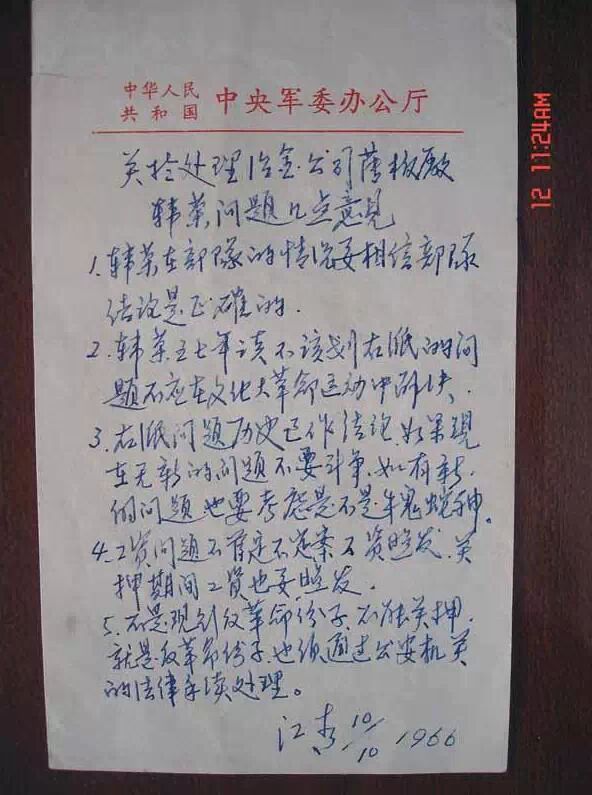 中华人民
共和国 中央军委办公厅
关于处理冶金公司薄板厰
韩荣问题几点意見
1. 韩荣在部隊的情况要相信部隊
结论是正确的.
2. 韩荣五七年该不该划右派的问
题不应在文化大革命运动中解决.
3. 右派问题历史已作结论, 如果现
在无新的问题不要斗争, 如有新
的问题也要考虑是不是牛鬼蛇神.
4. 工资问题不肯定不定案工资照发. 关
押期间工资也要照发.
5. 不是现刑反革命份子不能关押,
就是反革命份子也须通过公安机关
的法律手续处理。
江青 10/10 1966
12 11:24AM